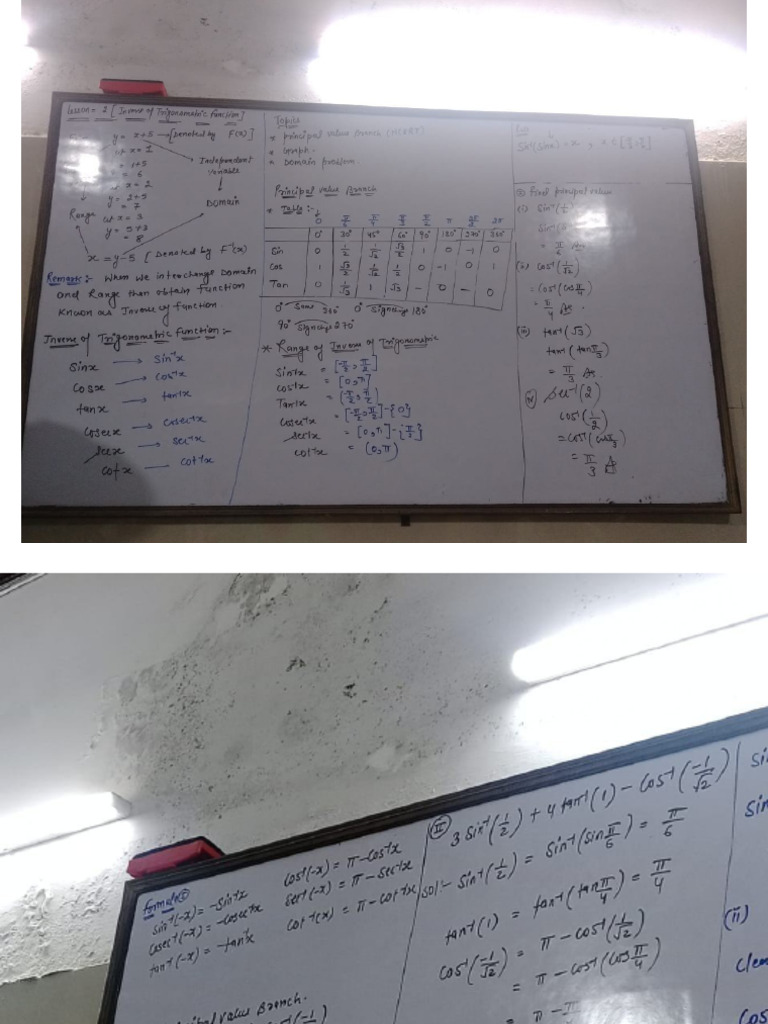 Lesson - 2 [Inverse of Trigonometric function]
y = x+5 → [Denoted by F(x)]
x = 1
= 1+5
= 6
x = 2
y = 2+5
= 7
at x = 3
y = 5+3
= 8
Independent variable
Domain
Range
x = y-5 [Denoted by F⁻¹(x)
Remark:- When we interchange Domain
and Range then obtain function
known as Inverse of function
Inverse of Trigonometric function:-
Sinx → Sin⁻¹x
Cosx → Cos⁻¹x
tanx → tan⁻¹x
Cosecx → Cosec⁻¹x
Secx → Sec⁻¹x
Cotx → Cot⁻¹x
Topics
* Principal value Branch (NCERT)
* Graph.
* Domain problem
Principal value Branch
* Table:-
0 π/6 π/4 π/3 π/2 π 3π/2 2π
0° 30° 45° 60° 90° 180° 270° 360°
Sin 0 1/2 1/√2 √3/2 1 0 -1 0
Cos 1 √3/2 1/√2 1/2 0 -1 0 1
Tan 0 1/√3 1 √3 - 0 - 0
0° Same 360 0° Sign change 180°
90° Sign change 270°
* Range of Inverse of Trigonometric
Sin⁻¹x = [-π/2, π/2]
Cos⁻¹x = [0, π]
Tan⁻¹x = (-π/2, π/2)
Cosec⁻¹x = [-π/2, π/2] - {0}
Sec⁻¹x = [0, π] - {π/2}
Cot⁻¹x = (0, π)
Sin⁻¹(Sinx) = x,
Find principal value
(i) Sin⁻¹(1/2)
= π/6 Ans
(ii) Cos⁻¹(1/√2)
= Cos⁻¹(Cos π/4)
= π/4 Ans.
(iii) tan⁻¹(√3)
tan⁻¹(tan π/3)
= π/3 Ans
(iv) Sec⁻¹(2)
Cos⁻¹(1/2)
= Cos⁻¹(Cos π/3)
= π/3 A
Formula
Sin⁻¹(-x) = -Sin⁻¹x
Cosec⁻¹(-x) = -Cosec⁻¹x
tan⁻¹(-x) = -tan⁻¹x
Cos⁻¹(-x) = π - Cos⁻¹x
Sec⁻¹(-x) = π - Sec⁻¹x
Cot⁻¹(x) = π - Cot⁻¹x
cipal value Branch.
(II) 3 Sin⁻¹(1/2) + 4 tan⁻¹(1) - Cos⁻¹(-1/√2)
Sol:- Sin⁻¹(1/2) = Sin⁻¹(Sin π/6) = π/6
tan⁻¹(1) = tan⁻¹(tan π/4) = π/4
Cos⁻¹(-1/√2) = π - Cos⁻¹(1/√2)
= π - Cos⁻¹(Cos π/4)
= π - π
Sin
(ii)
Clea
Cos